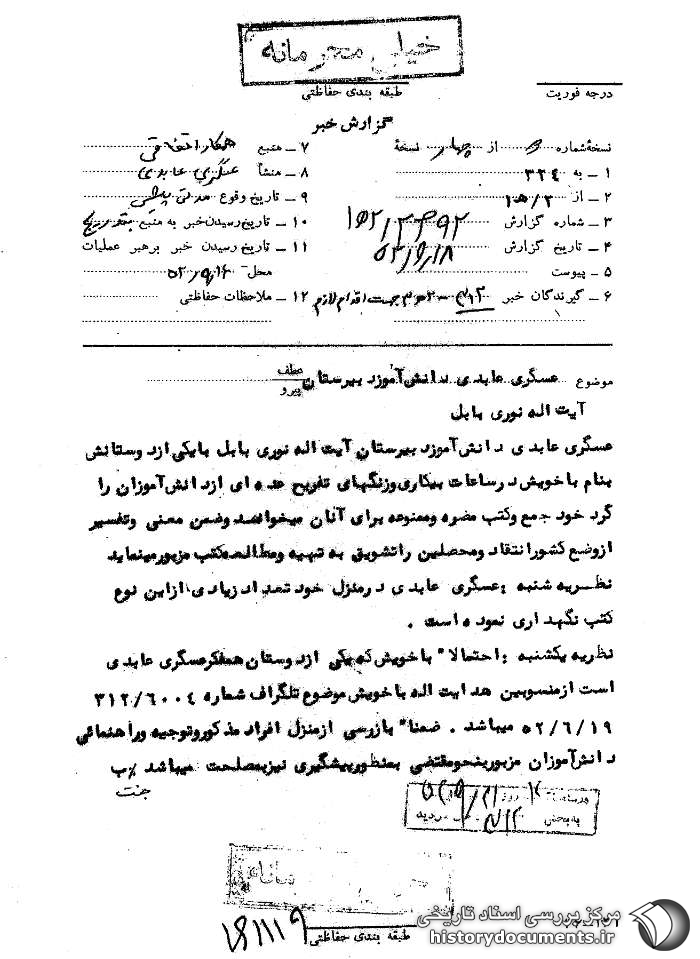 خیلی محرمانه
طبقه بندی حفاظتی
درجه فوریت
گزارش خبر
نسخهٔ شماره از چهار نسخهٔ
۱ ـ به ۳۲۴
۲ ـ از
۳ ـ شماره گزارش
۴ ـ تاریخ گزارش
۵ ـ پیوست
۶ ـ گیرندگان خبر جهت اقدام لازم
۷ ـ منبع همکار افتخاری
۸ ـ منشأ عسگری عابدی
۹ ـ تاریخ وقوع مدتی پیش
۱۰ ـ تاریخ رسیدن خبر به منبع بتدریج
۱۱ ـ تاریخ رسیدن خبر برهبر عملیات
محل
۱۲ ـ ملاحظات حفاظتی
موضوع عسگری عابدی دانش آموزدبیرستان
عطف
پیرو
آیت اله نوری بابل
عسگری عابدی دانش آموزدبیرستان آیت اله نوری بابل بایکی ازدوستانش
بنام باخویش درساعات بیکاری وزنگهای تفریح عده ای ازدانش آموزان را
گرد خود جمع وکتب مضره وممنوعه برای آنان میخوانند وضمن معنی وتفسیر
ازوضع کشورانتقاد ومحصلین راتشویق به تهیه ومطالعه کتب مزبورمینماید
نظریه شنبه : عسگری عابدی درمنزل خود تعداد زیادی ازاین نوع
کتب نگهداری نموده است .
نظریه یکشنبه : احتمالا" باخویش که یکی ازدوستان همفکرعسگری عابدی
است ازمنسوبین هدایت اله باخویش موضوع تلگراف شماره ۳۱۲/۶۰۰۴
۵۲/۶/۱۹ میباشد . ضمنا" بازرسی ازمنزل افراد مذکوروتوجیه وراهنمائی
دانش آموزان مزبوربنحومقتضی بمنظورپیشگیری نیزبمصلحت میباشد %ب
به بخش
طبقه بندی حفاظتی
مرکز بررسی اسناد تاریخی
historydocuments.ir